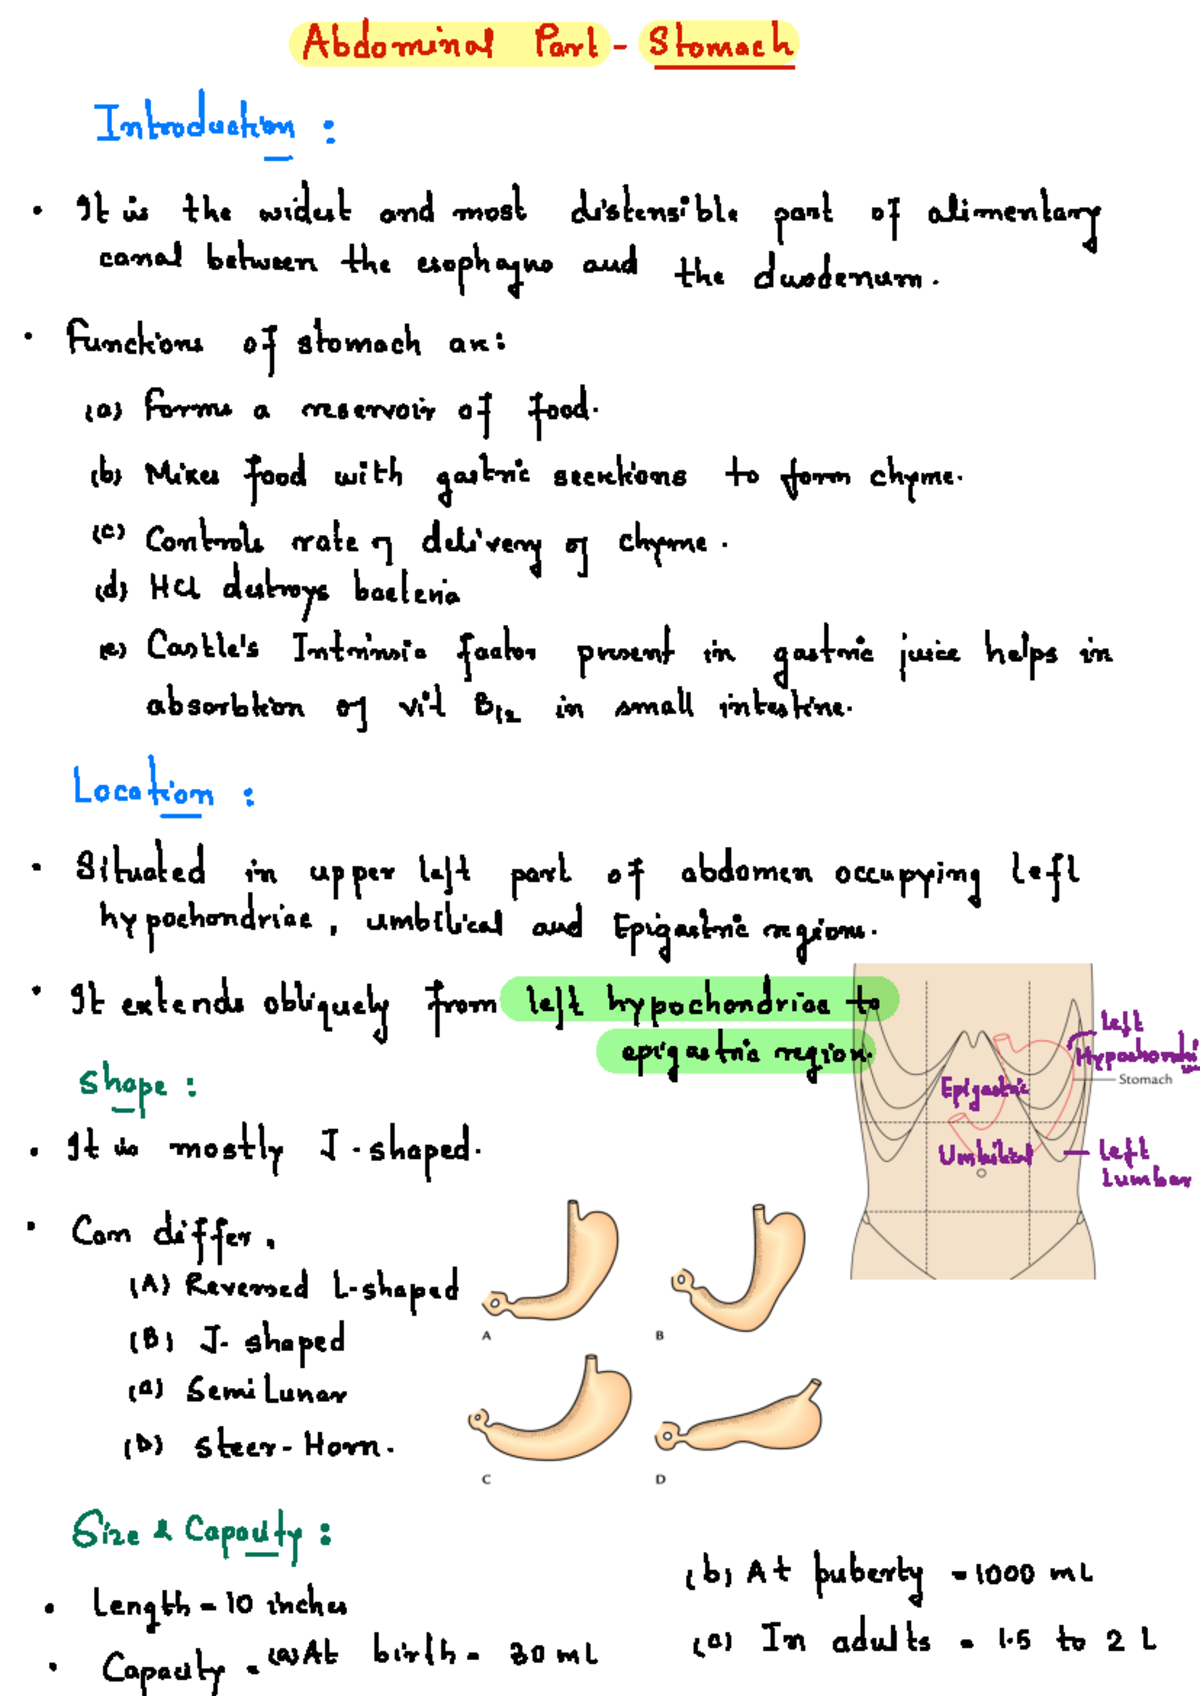 Abdominal Part - Stomach
Introduction :
• It is the widest and most distensible part of alimentary
canal between the esophagus and the duodenum.
• Functions of stomach are:
(a) Forms a reservoir of food.
(b) Mixes food with gastric secretions to form chyme.
(c) Controls rate of delivery of chyme.
(d) HCl destroys bacteria
(e) Castle's Intrinsic factor present in gastric juice helps in
absorbtion of vit B12 in small intestine.
Location :
• Situated in upper left part of abdomen occupying left
hypochondriac, umbilical and Epigastric regions.
• It extends obliquely from left hypochondriac to
epigastric region.
Left
Hypochondri
Stomach
Epigastric
Umbilical
Left
Lumbar
Shape :
• It is mostly J-shaped.
• Can differ,
(A) Reversed L-shaped
(B) J-shaped
(C) Semi Lunar
(D) Steer-Horn.
A
B
C
D
Size & Capacity :
• Length = 10 inches
• Capacity = (a) At birth = 30 mL
(b) At puberty = 1000 mL
(c) In adults = 1.5 to 2 L